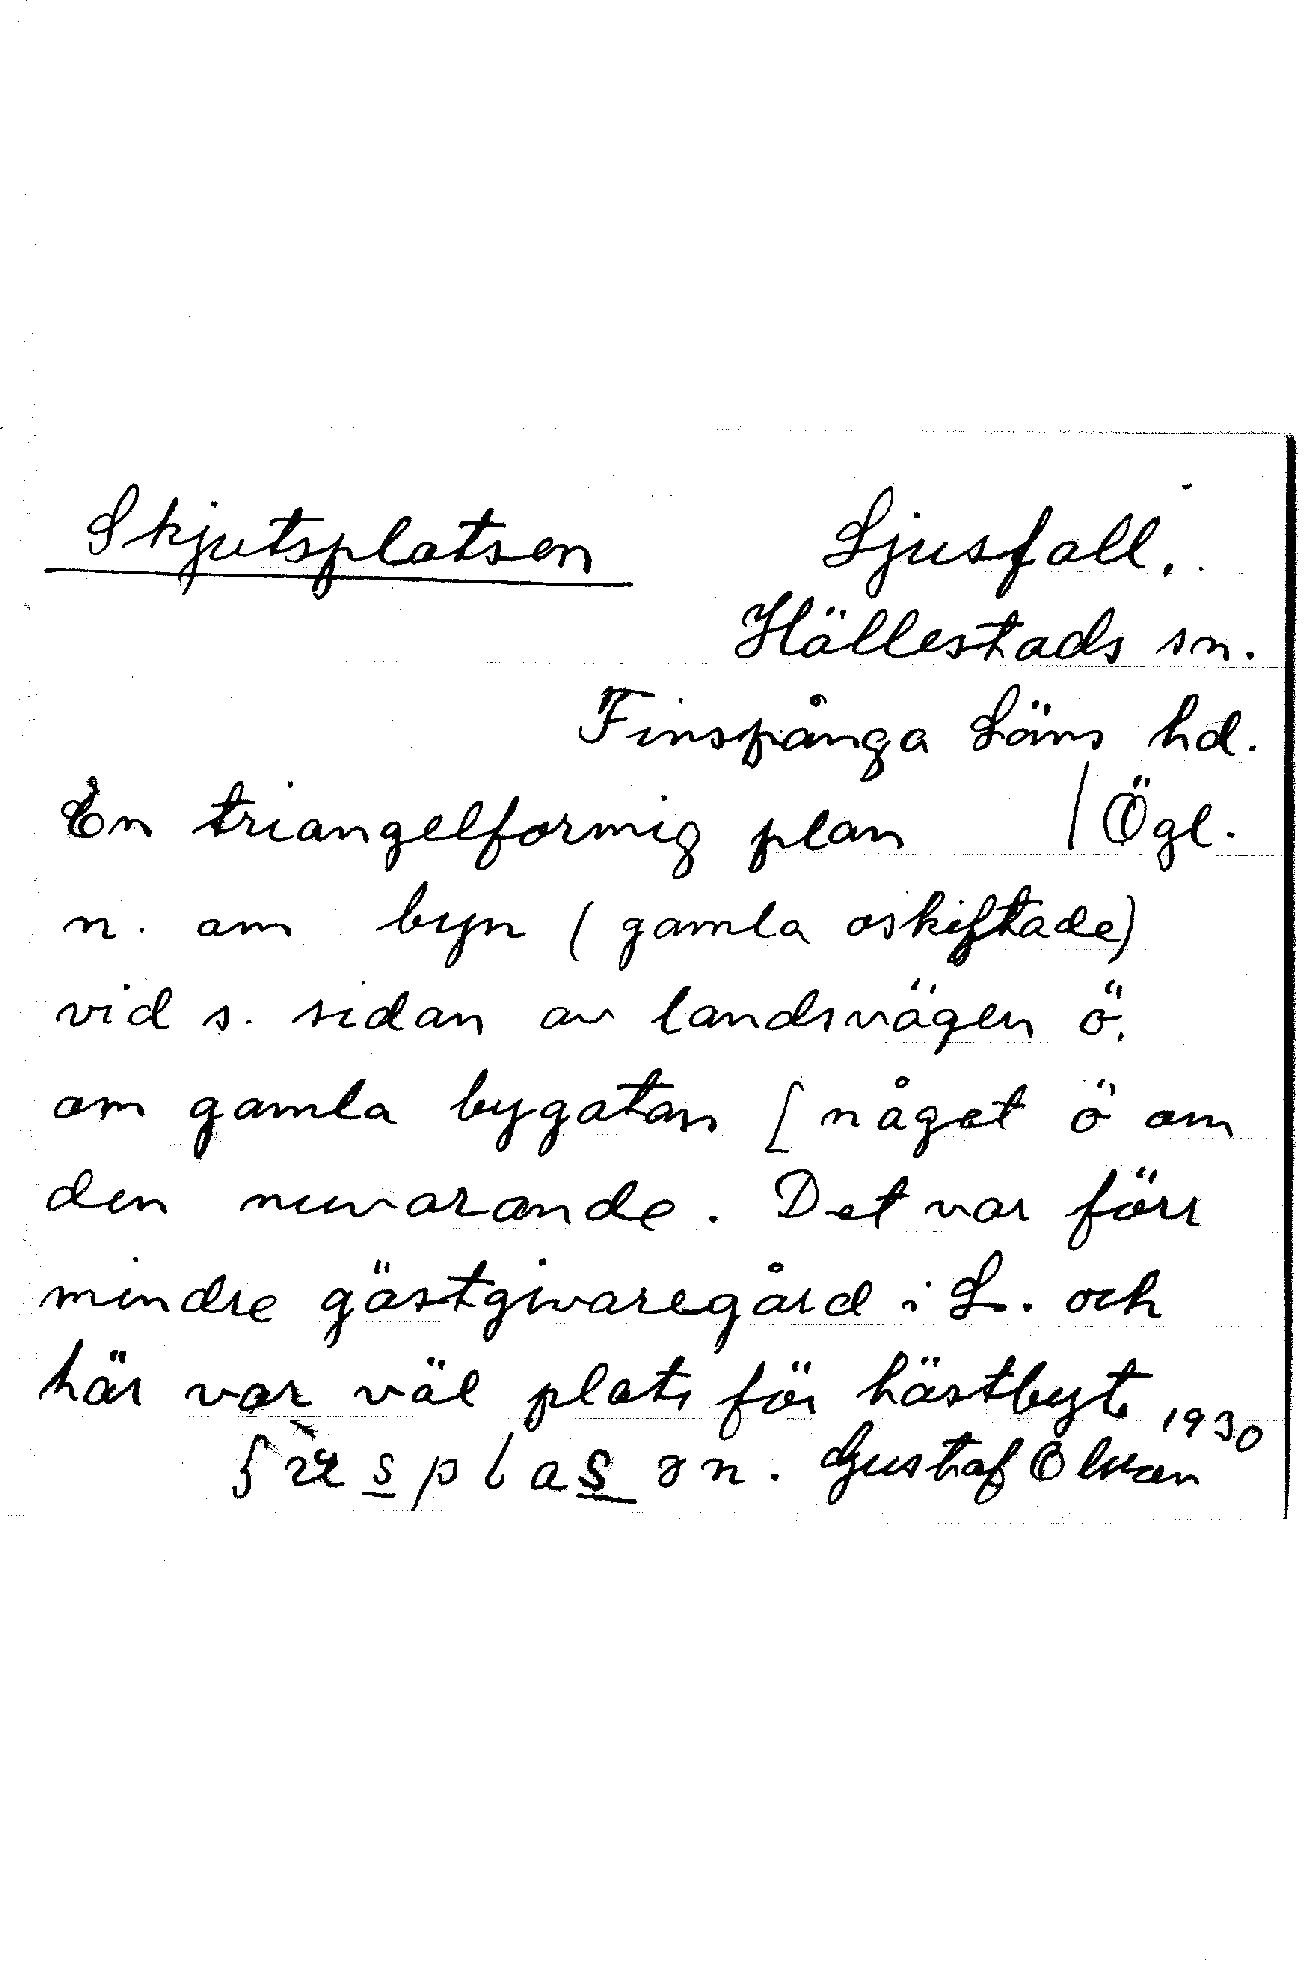 Skjutsplatsen Ljusfall.
Hällestads sn.
Finspånga Läns hd.
En triangelformig plan / Ögl.
n. om byn (gamla oskiftade)
vid s. sidan av landsvägen ö.
om gamla bygatan [något ö om
den nuvarande. Det var förr
mindre gästgivaregård i L. och
här var väl plats för hästbyte 1930
Gustaf